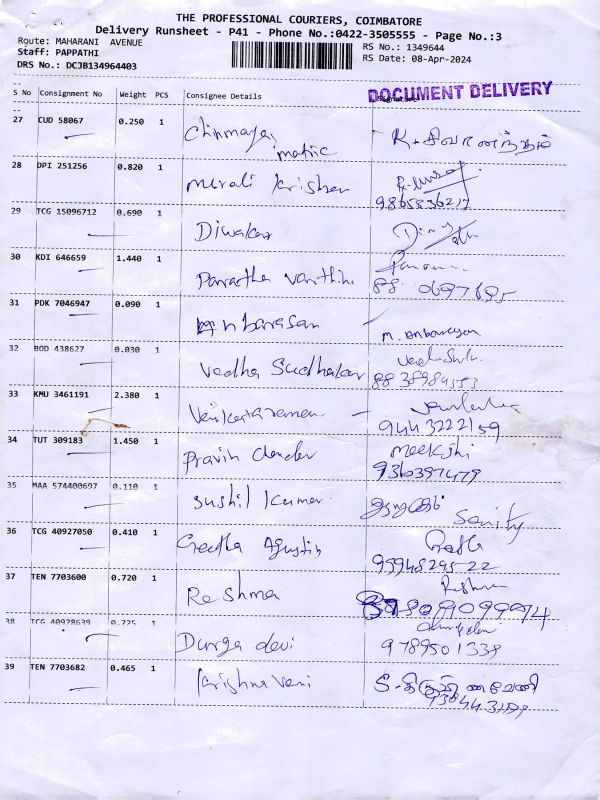 THE PROFESSIONAL COURIERS, COIMBATORE
Delivery Runsheet - P41 - Phone No.:0422-3505555 - Page No.:3
Route: MAHARANI AVENUE
RS No.: 1349644
Staff: PAPPATHI
RS Date: 08-Apr-2024
DRS No.: DCJB134964403
DOCUMENT DELIVERY
S No Consignment No Weight PCS Consignee Details
27 CUD 58067 0.250 1 Chinmaya matric K. சிவானந்தம்
28 DPI 251256 0.820 1 Murali Krishnan
9865836217
29 TCG 15096712 0.690 1 Diwakar
30 KDI 646659 1.440 1
31 PDK 7046947 0.090 1 M. Anbarasan
32 BOD 438627 0.030 1 Vedha Sudhakar
33 KMU 3461191 2.380 1 Venkataraman
9443222159
34 TUT 309183 1.450 1 Pravin Chander Meekshi
9360397479
35 MAA 574400697 0.110 1 Sushil Kumar
Sanity
36 TCG 40927050 0.410 1 Geetha Agustin
37 TEN 7703600 0.720 1 Reshma Reshma
38 TCG 40928639 0.725 1 Durga devi
9789501339
39 TEN 7703682 0.465 1 Krishna Veni S. கிருஷ்ணவேணி